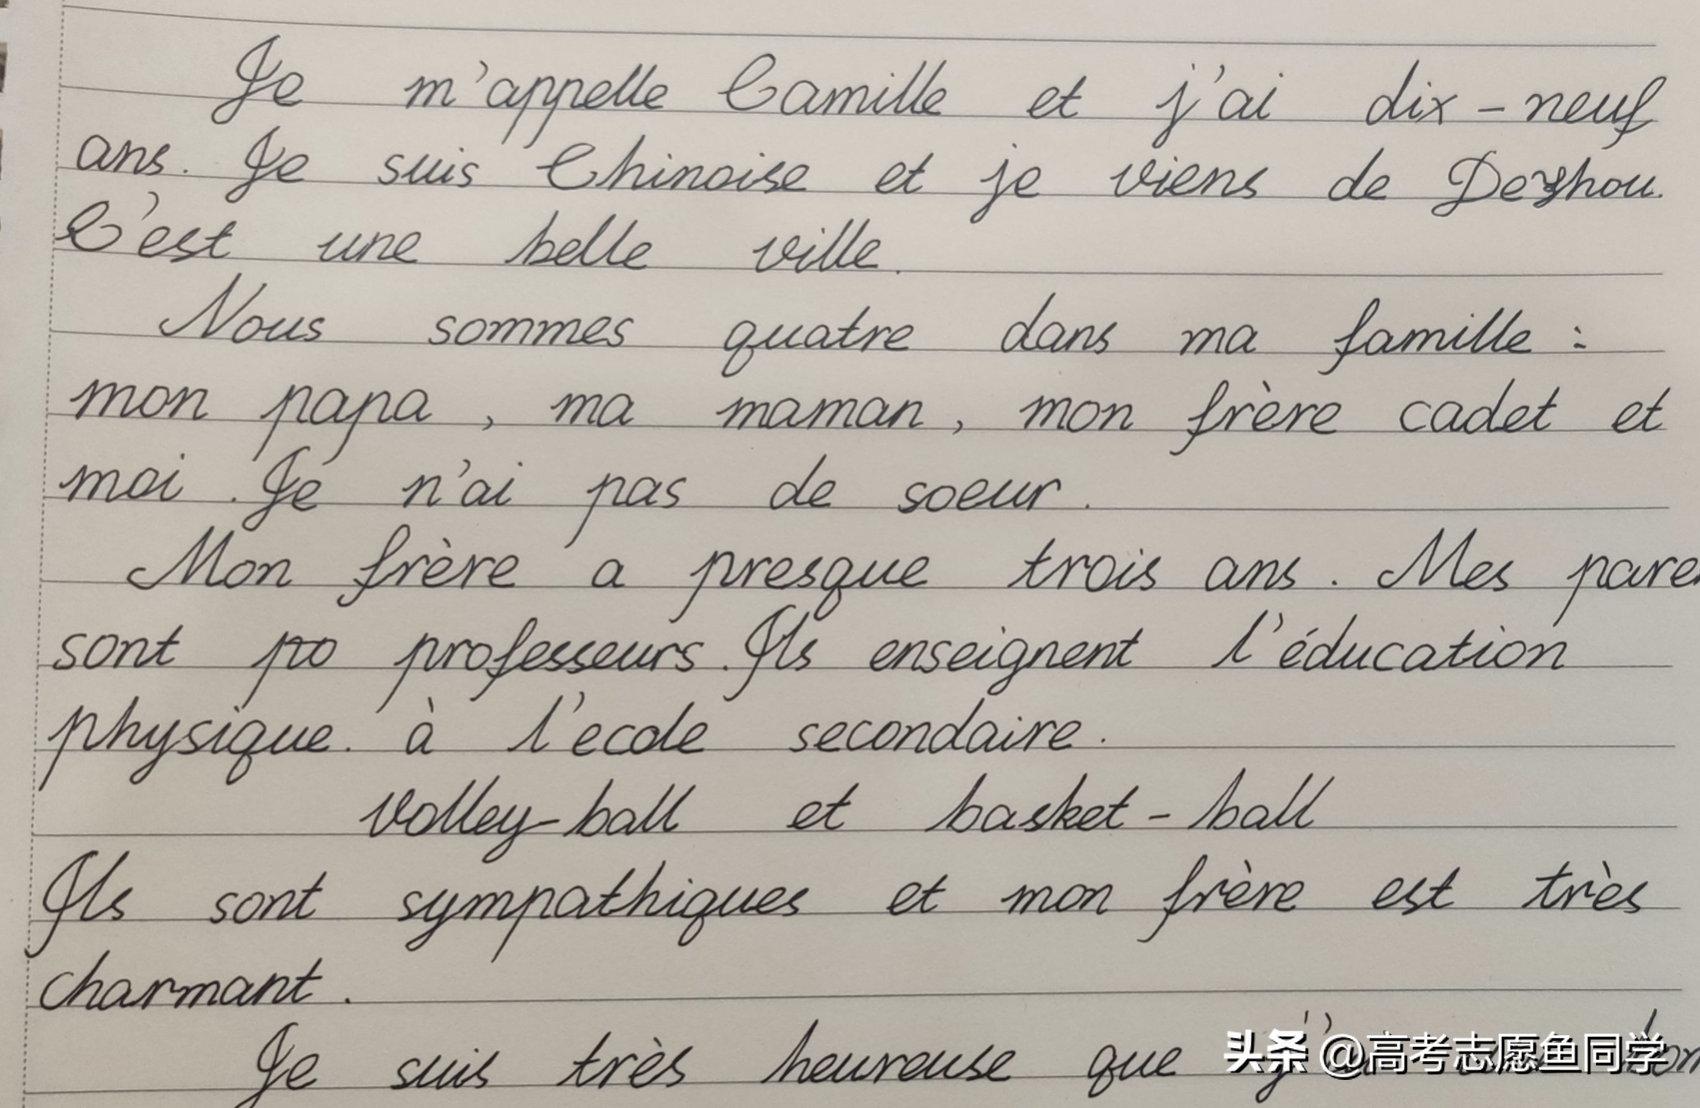 Je m'appelle Camille et j'ai dix-neuf
ans. Je suis Chinoise et je viens de Dezhou.
C'est une belle ville.
Nous sommes quatre dans ma famille :
mon papa, ma maman, mon frère cadet et
moi. Je n'ai pas de soeur.
Mon frère a presque trois ans. Mes pare
sont pro professeurs. Ils enseignent l'éducation
physique. à l'ecole secondaire.
volley-ball et basket-ball
Ils sont sympathiques et mon frère est très
charmant.
Je suis très heureuse que
头条 @高考志愿鱼同学